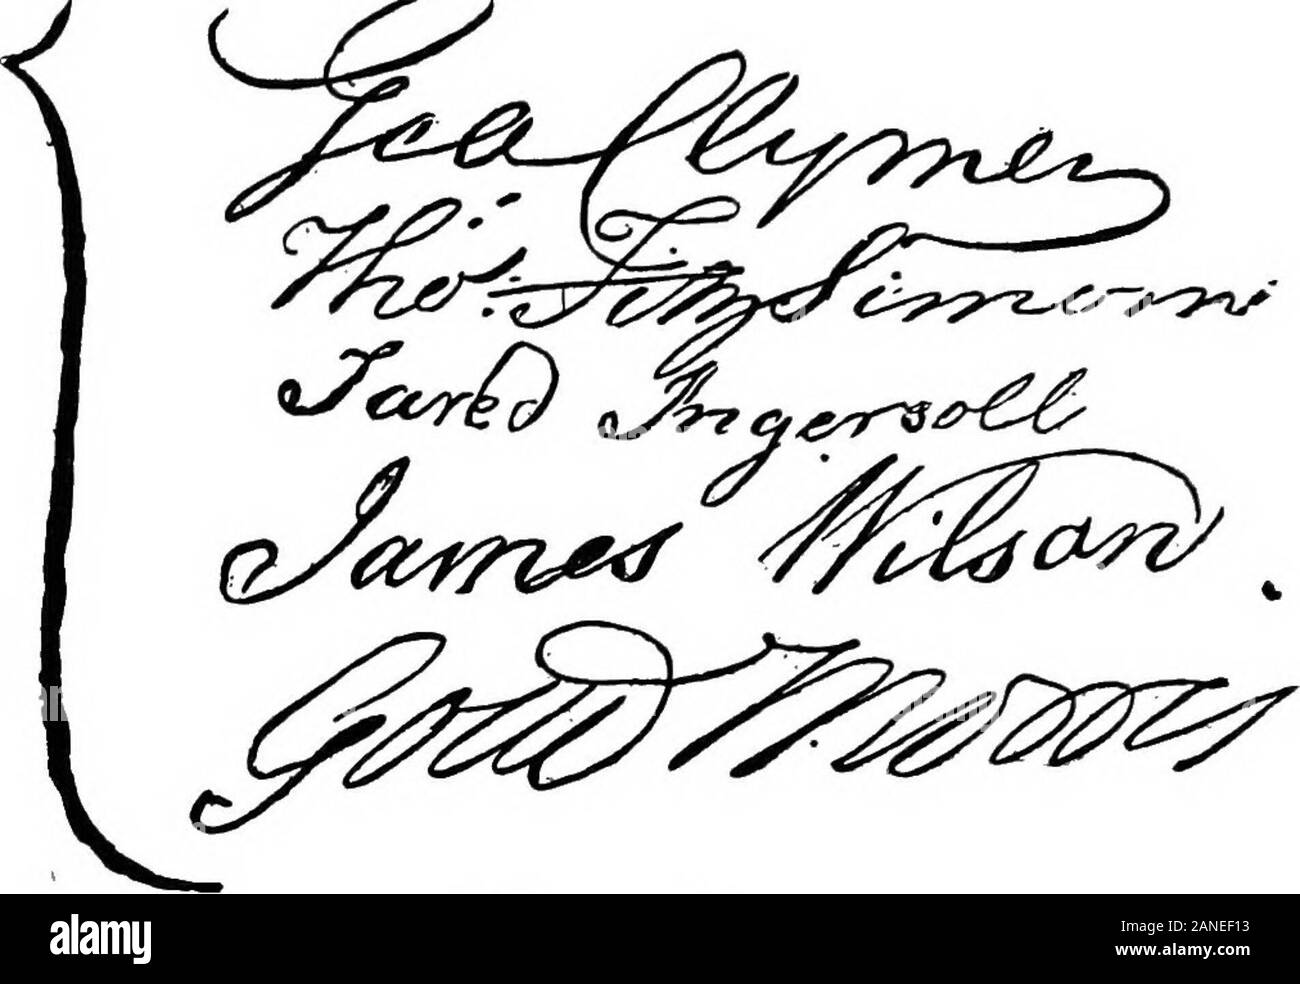 Geo Clymer
Thos. FitzSimons
Jared Ingersoll
James Wilson.
Gouv Morris
alamy
Image ID: 2ANEEF13
www.alamy.com